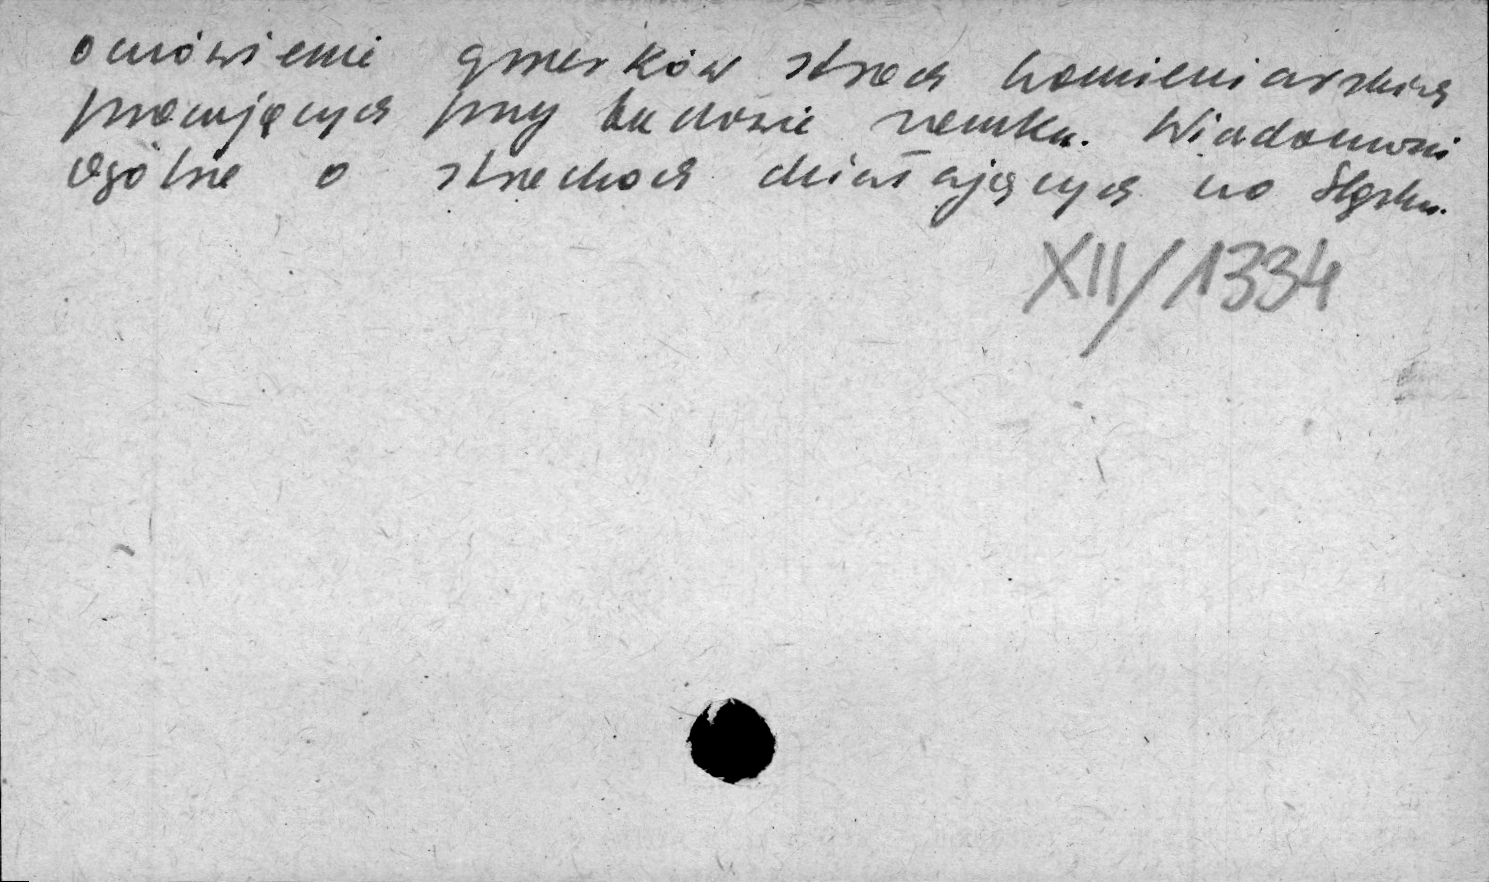 omówienie gmerków strzech kamieniarskich
pracujących przy budowie zamku. Wiadomości
ogólne o strzechach działających na Śląsku.
XII/1334